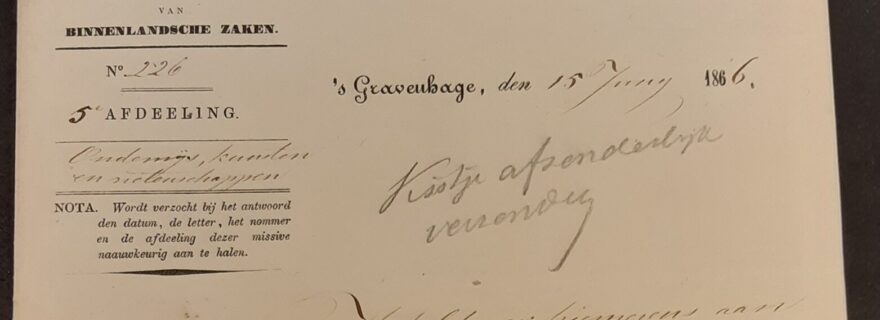 VAN
BINNENLANDSCHE ZAKEN.
Nº 226
's Gravenhage, den 15 Juny 1866.
5e AFDEELING.
Onderwijs, kunsten
en wetenschappen
Kistje afzonderlijk
verzonden
NOTA. Wordt verzocht bij het antwoord
den datum, de letter, het nommer
en de afdeeling dezer missive
naauwkeurig aan te halen.
hiernevens aan